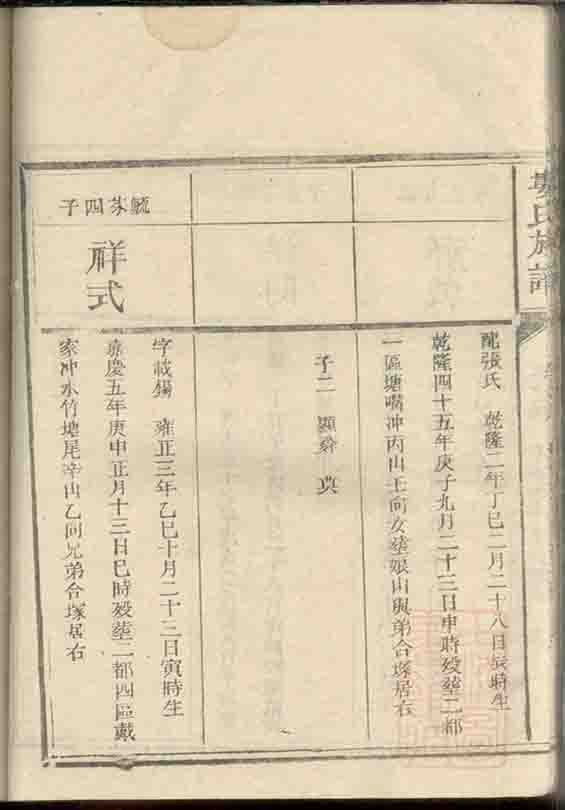 氏族譜
配張氏 乾隆二年丁巳二月二十八日辰時生
乾隆四十五年庚子九月二十三日申時殁塟二都
一區塘嘴冲丙山壬向女塟娘山與弟合塚居右
子二 顯
毓芬四子
祥式
字載錫 雍正三年乙巳十月二十三日寅時生
嘉慶五年庚申正月十三日巳時殁塟二都四區戴
家冲水竹塘尾辛山乙向兄弟合塚居右